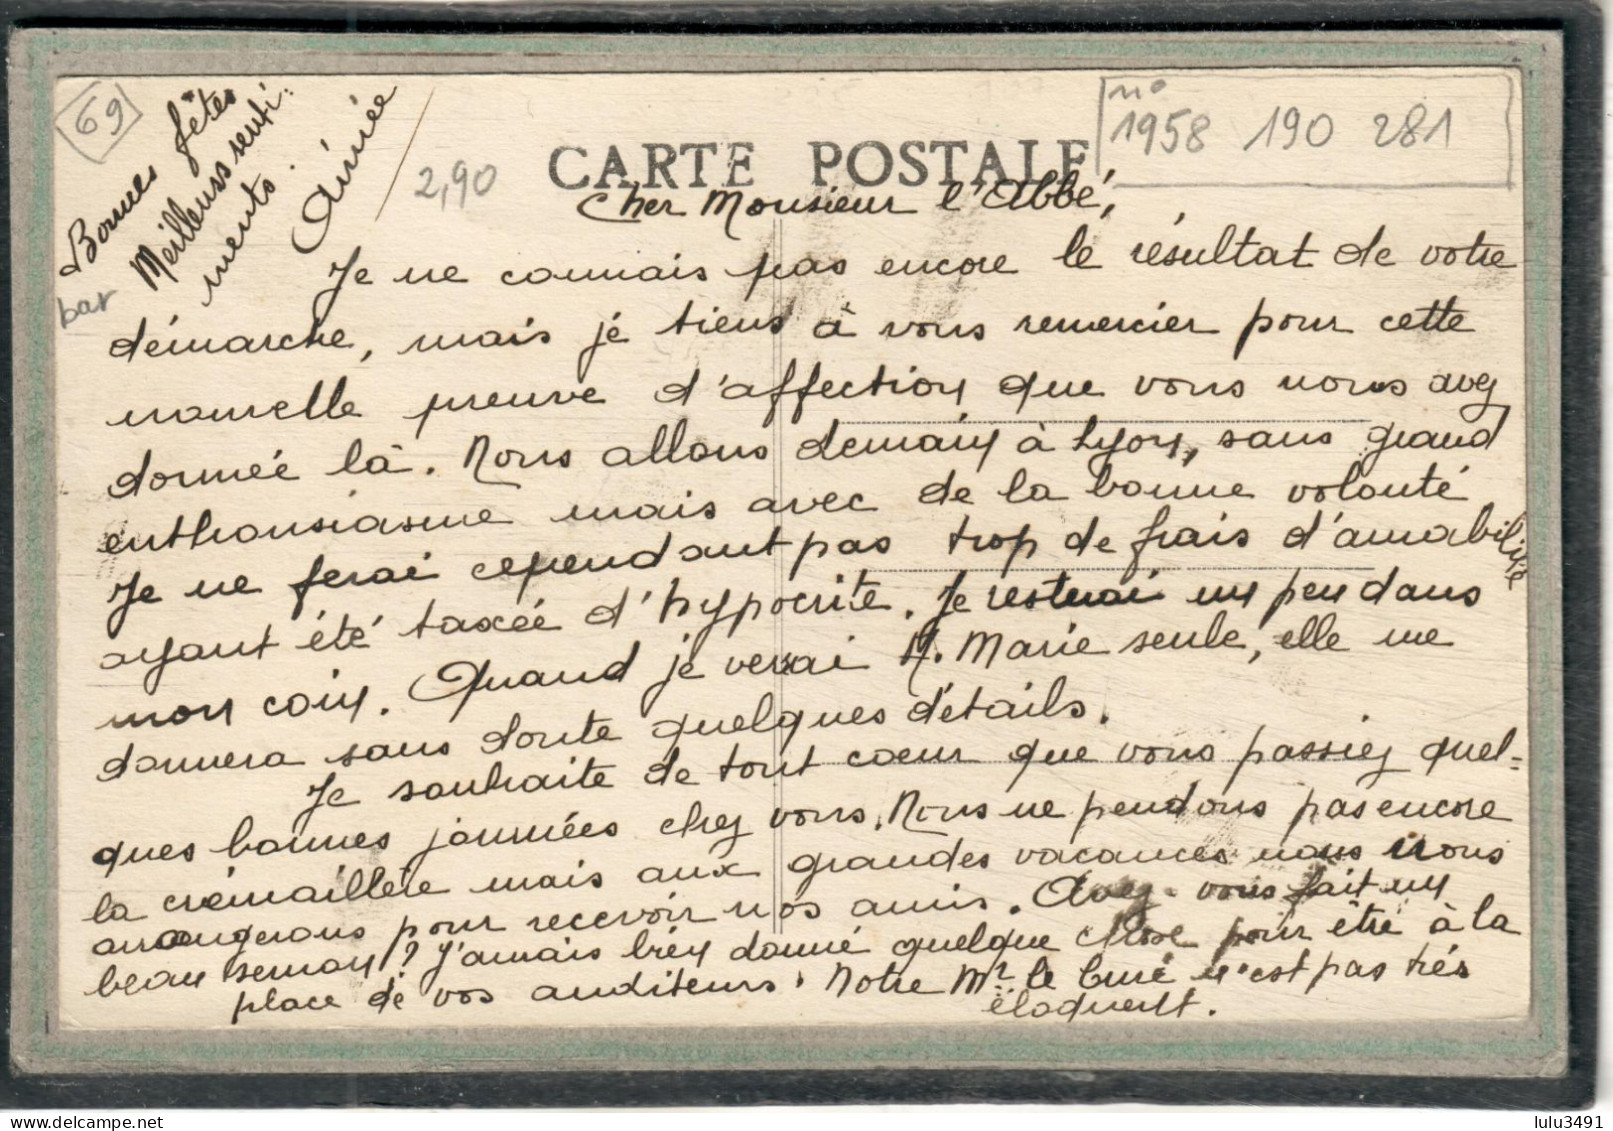 69
Bonnes fêtes
Meilleurs senti-
ments.
Aimée
bar
2,90
n°
1958 190 281
CARTE POSTALE
Cher Monsieur l'Abbé,
Je ne connais pas encore le résultat de votre
démarche, mais je tiens à vous remercier pour cette
nouvelle preuve d'affection que vous nous avez
donnée là. Nous allons demain à Lyon, sans grand
enthousiasme mais avec de la bonne volonté
Je ne ferai cependant pas trop de frais d'amabilité
ayant été taxée d'hypocrite. Je resterai un peu dans
mon coin. Quand je verrai M. Marie seule, elle me
donnera sans doute quelques détails.
Je souhaite de tout coeur que vous passiez quel-
ques bonnes journées chez vous. Nous ne pendons pas encore
la crémaillère mais aux grandes vacances nous nous
arrangerons pour recevoir nos amis. Avez-vous fait un
beau sermon? J'aurais bien donné quelque chose pour être à la
place de vos auditeurs. Notre Mr le Curé n'est pas très
éloquent.
lulu3491